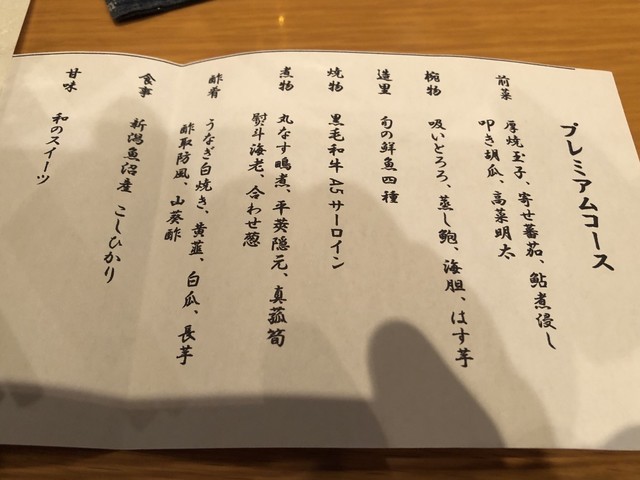 プレミアムコース
前菜 厚焼玉子、寄せ蕃茄、鮎煮浸し
叩き胡瓜、高菜明太
椀物 吸いとろろ、蒸し鮑、海胆、はす芋
造里 旬の鮮魚四種
焼物 黒毛和牛A5サーロイン
煮物 丸なす鴫煮、平莢隠元、真菰筍
熨斗海老、合わせ葱
酢肴 うなぎ白焼き、黄韮、白瓜、長芋
酢取防風、山葵酢
食事 新潟魚沼産 こしひかり
甘味 和のスイーツ